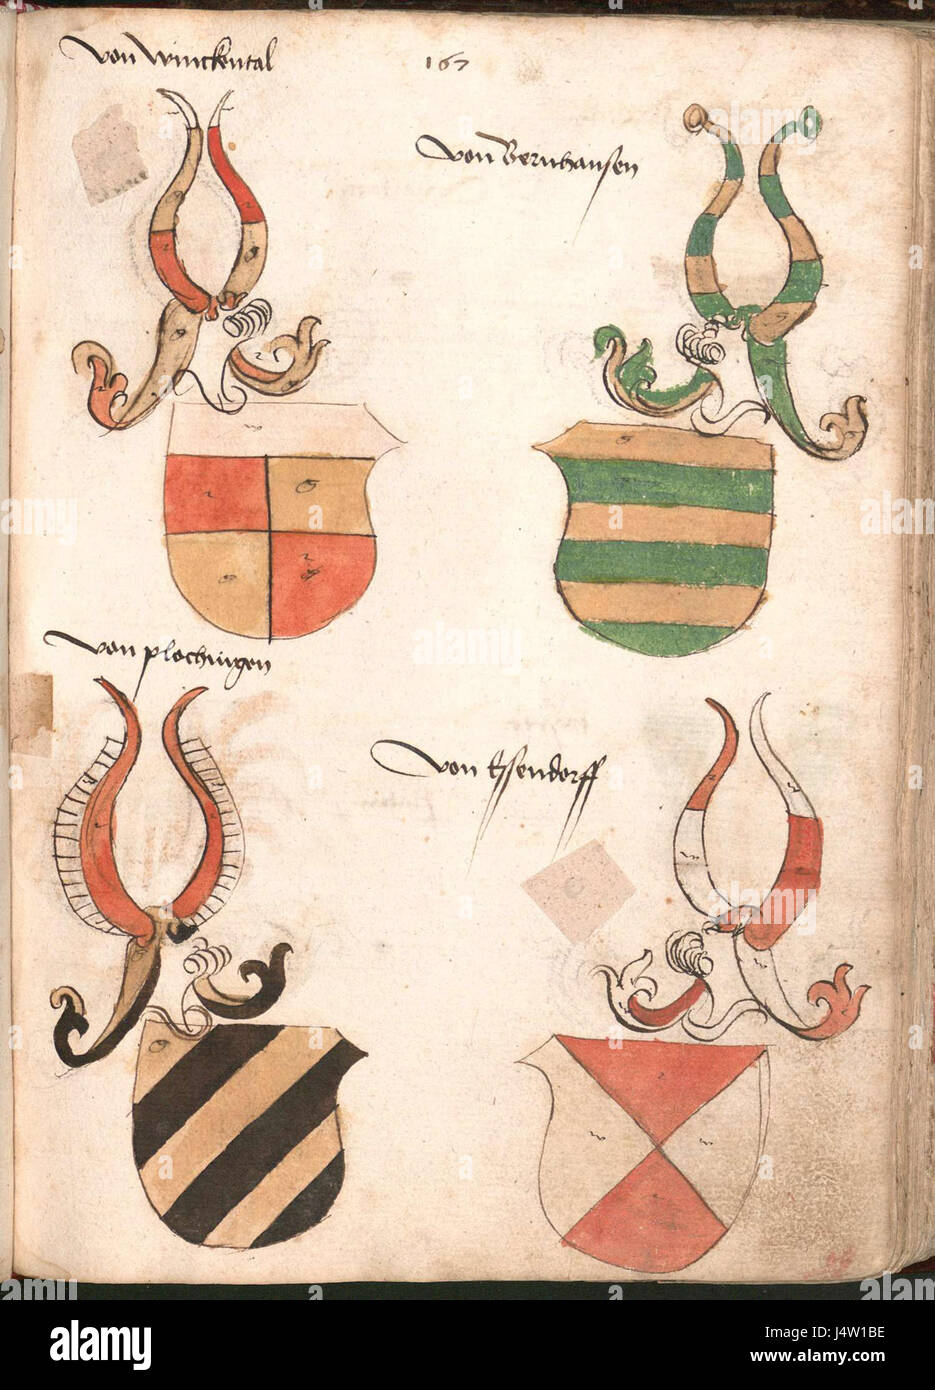 von Winckental
167
von Bernhausen
von plochingen
von Essendorff
alamy
Image ID: J4W1BE
www.alamy.com